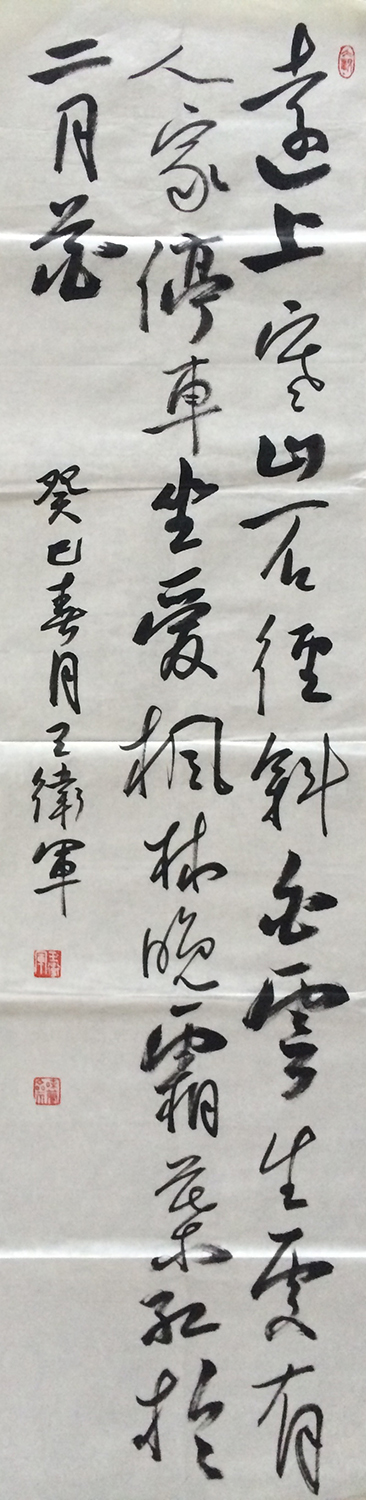 遠上寒山石徑斜白雲生處有
人家停車坐愛楓林晚霜葉紅於
二月花
癸巳春月王衛軍